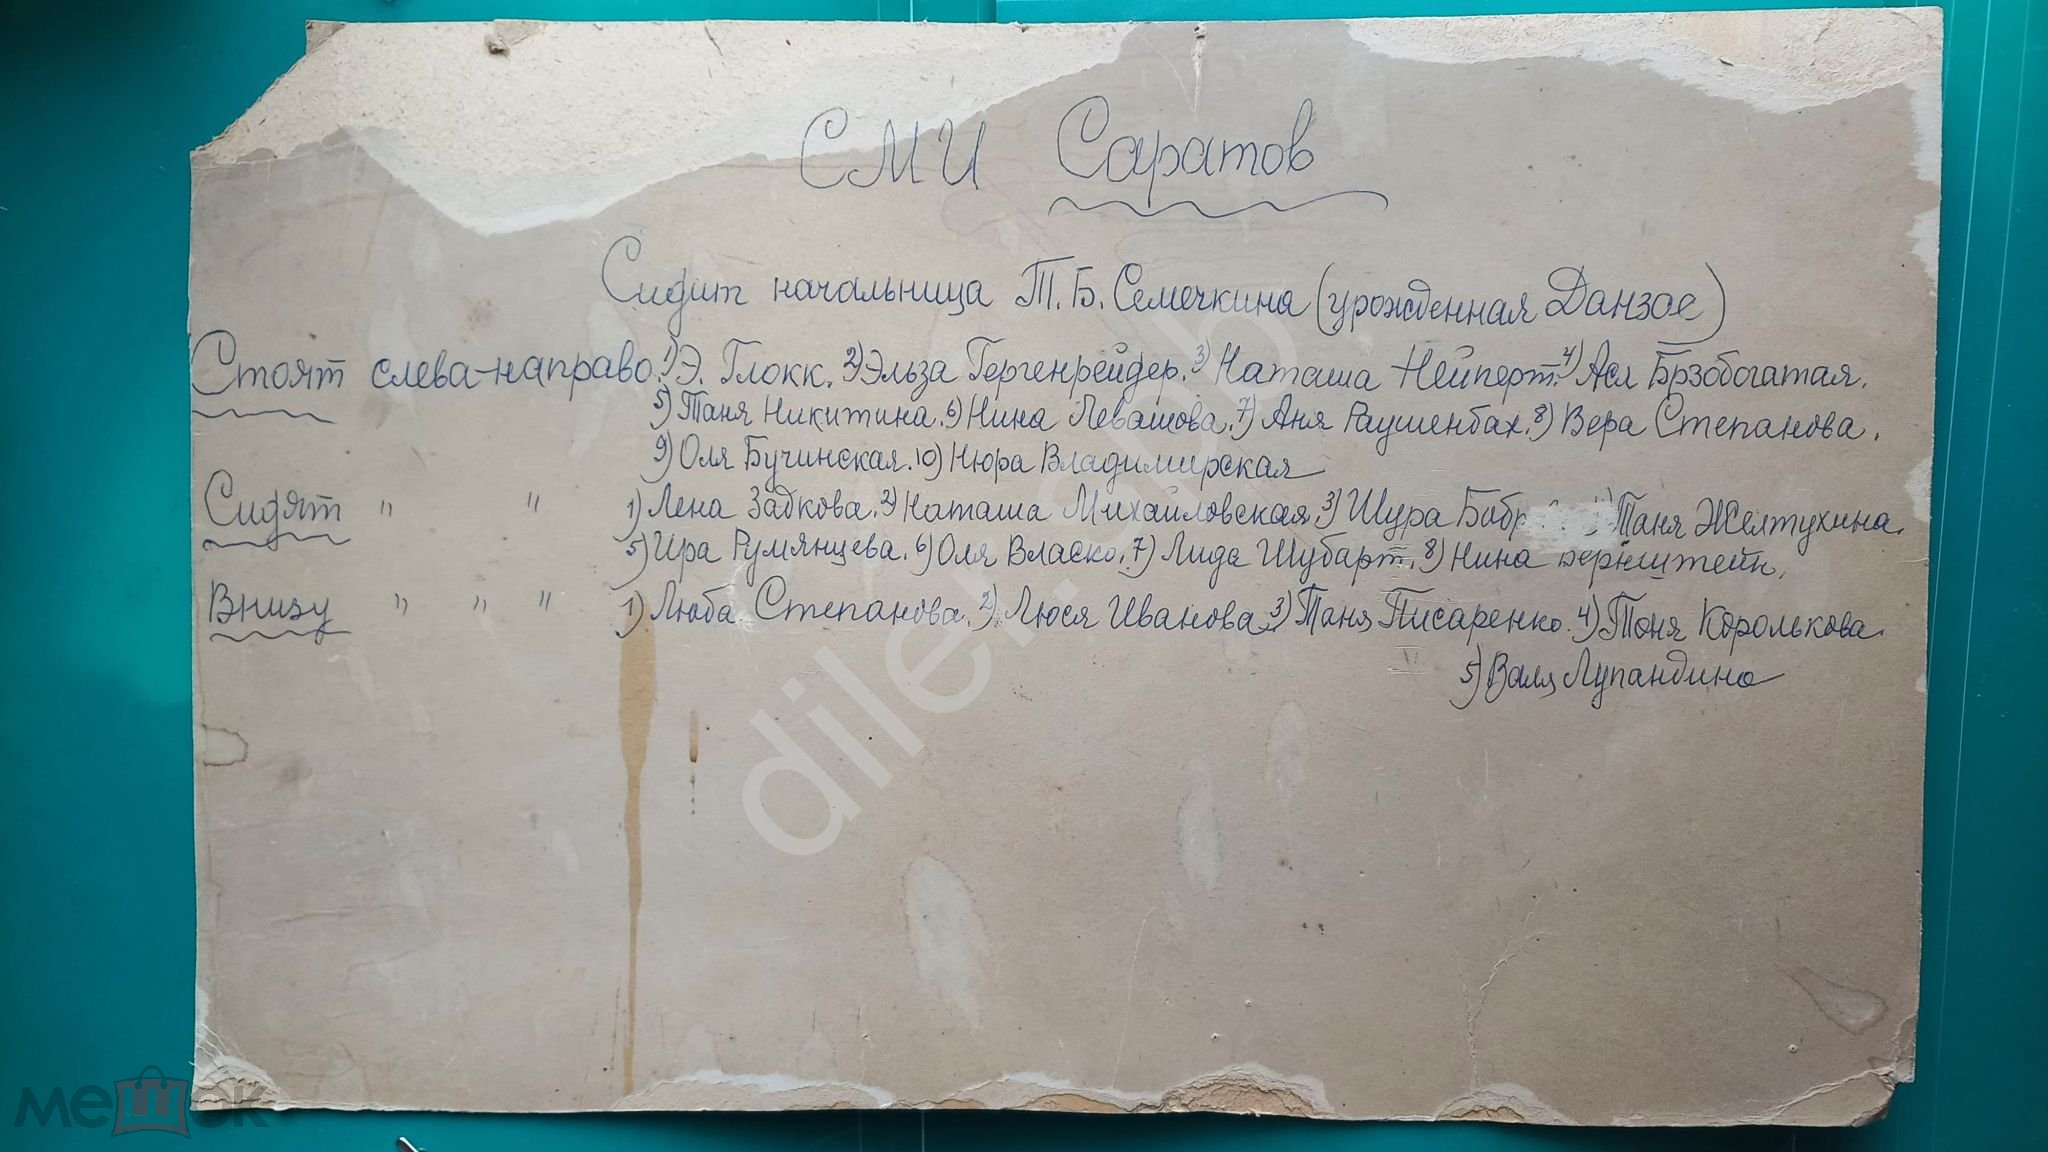 СМИ Саратов
Сидит начальница Т.Б. Семечкина (урожденная Данзас)
Стоят слева-направо. 1) Э. Глокк. 2) Эльза Гергенрейдер. 3) Наташа Нейперт. 4) Ася Брзобогатая.
5) Таня Никитина. 6) Нина Левашова. 7) Аня Раушенбах. 8) Вера Степанова.
9) Оля Бучинская. 10) Нюра Владимирская
Сидят " " 1) Лена Задкова. 2) Наташа Михайловская. 3) Шура Таня Желтухина.
5) Ира Румянцева. 6) Оля Власко. 7) Лида Шубарт. 8) Нина Бернштейн.
Внизу " " " 1) Люба Степанова. 2) Люся Иванова. 3) Таня Писаренко. 4) Тоня Королькова.
5) Валя Лупандина
мешок